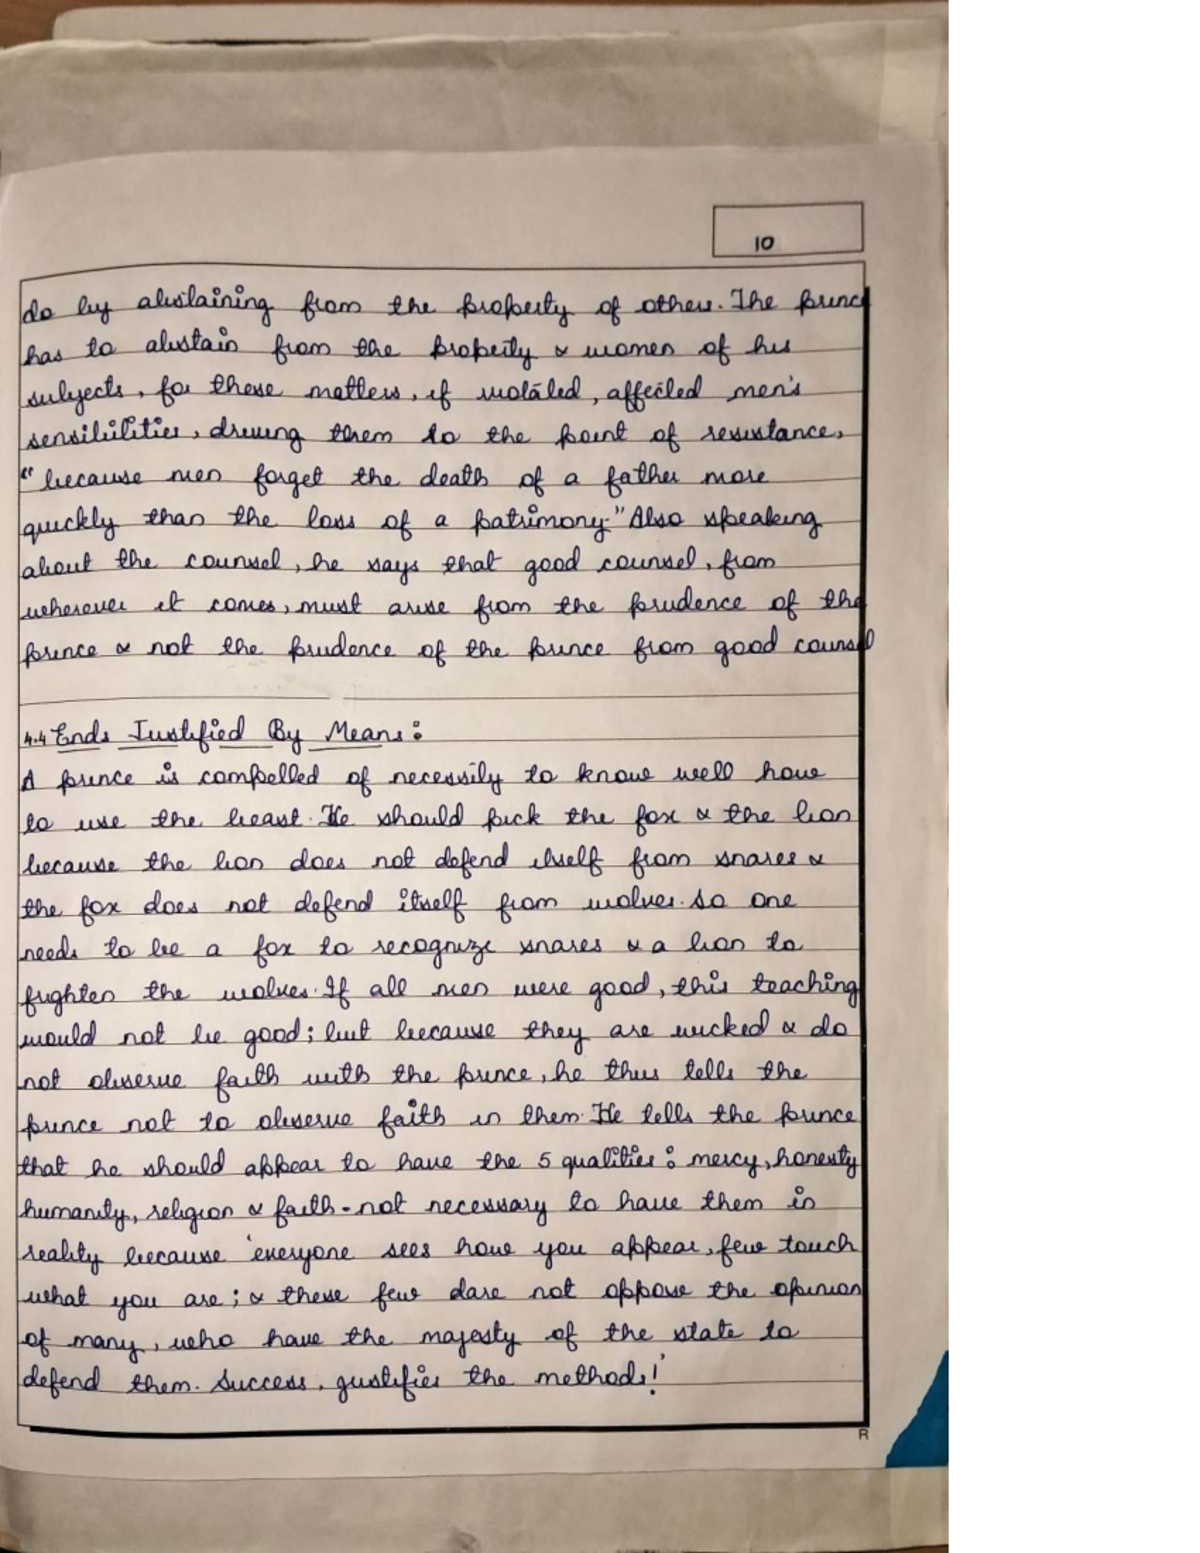 10
do by abstaining from the property of others. The prince
has to abstain from the property & women of his
subjects, for these matters, if violated, affected men's
sensibilities, driving them to the point of resistance,
"because men forget the death of a father more
quickly than the loss of a patrimony." Also speaking
about the counsel, he says that good counsel, from
wherever it comes, must arise from the prudence of the
prince & not the prudence of the prince from good counsel
4.4 Ends Justified By Means:
A prince is compelled of necessity to know well how
to use the beast. He should pick the fox & the lion
because the lion does not defend itself from snares &
the fox does not defend itself from wolves. So one
needs to be a fox to recognize snares & a lion to
frighten the wolves. If all men were good, this teaching
would not be good; but because they are wicked & do
not observe faith with the prince, he thus tells the
prince not to observe faith in them. He tells the prince
that he should appear to have the 5 qualities: mercy, honesty
humanity, religion & faith - not necessary to have them in
reality because 'everyone sees how you appear, few touch
what you are; & these few dare not oppose the opinion
of many, who have the majesty of the state to
defend them. Success, gustifies the methods!'
R